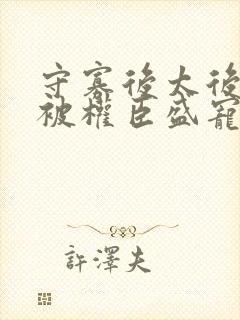 守寡後太後
被權臣盛寵
許澤夫